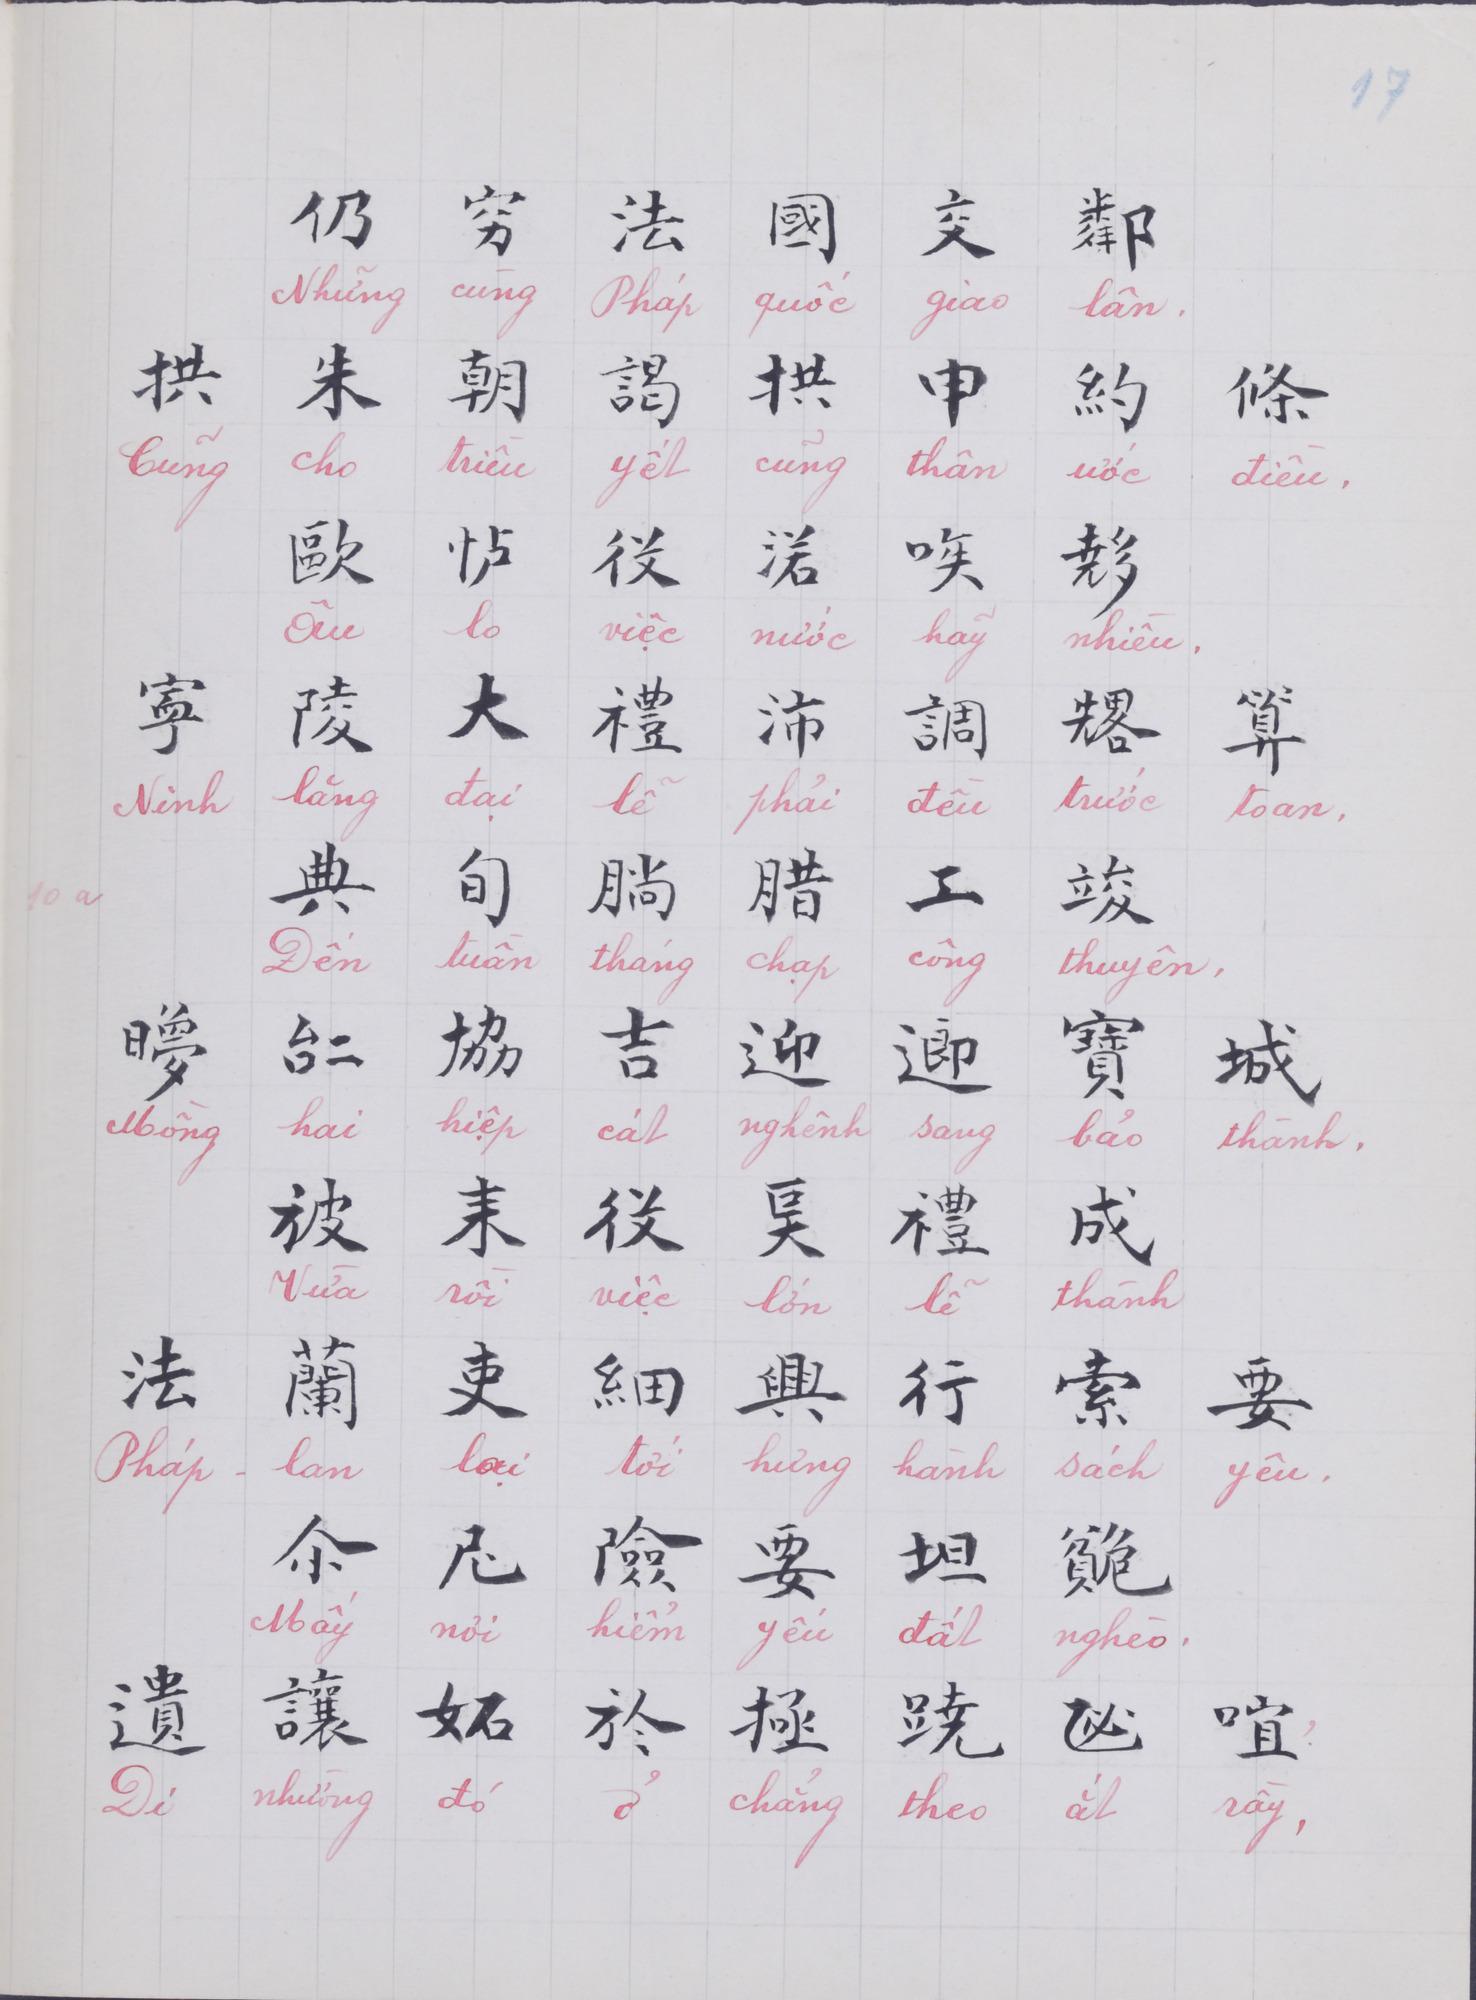 17
仍 穷 法 國 交 鄰
Những cùng Pháp quốc giao lân.
拱 朱 朝 謁 拱 申 約 條
Cũng cho triều yết cũng thân ước điều.
歐 怗 役 渃 唉
Âu lo việc nước hãy nhiều.
寧 陵 大 禮 沛 調 畧 算
Ninh lăng đại lễ phải đều trước toan.
10 a
典 旬 𦝄 腊 工 竣
Đến tuần tháng chạp công thuyên.
𣋽 𠄩 協 吉 迎 𨖅 寶 城
Mồng hai hiệp cát nghênh sang bảo thành.
被 耒 役 𡘯 禮 成
Vừa rồi việc lớn lễ thành
法 蘭 吏 細 興 行 索 要
Pháp - lan lại tới hưng hành sách yêu.
尒 尼 險 要 坦
Mấy nơi hiểm yếu đất nghèo.
遺 讓 妬 於 拯 蹺 喧
Di nhường đó ở chẳng theo ắt rầy,